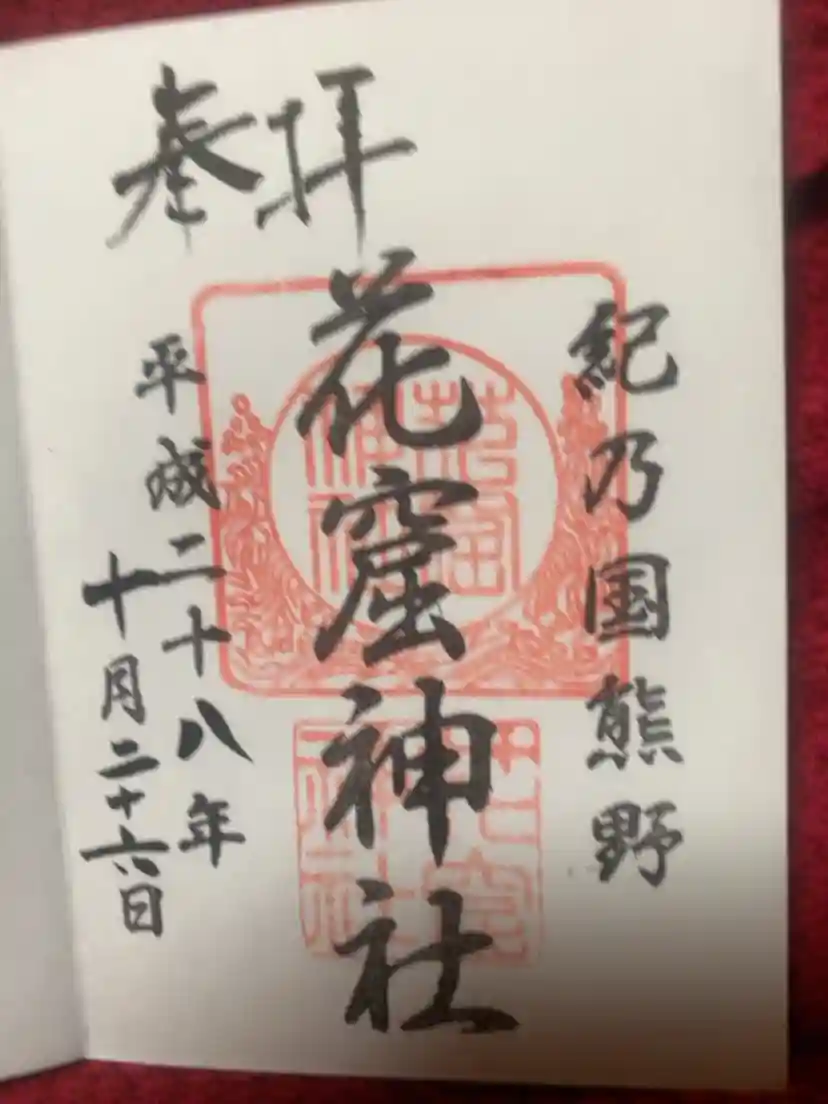 奉拝
紀乃国熊野
花窟神社
平成二十八年
十月二十六日
花窟神社
花窟神社